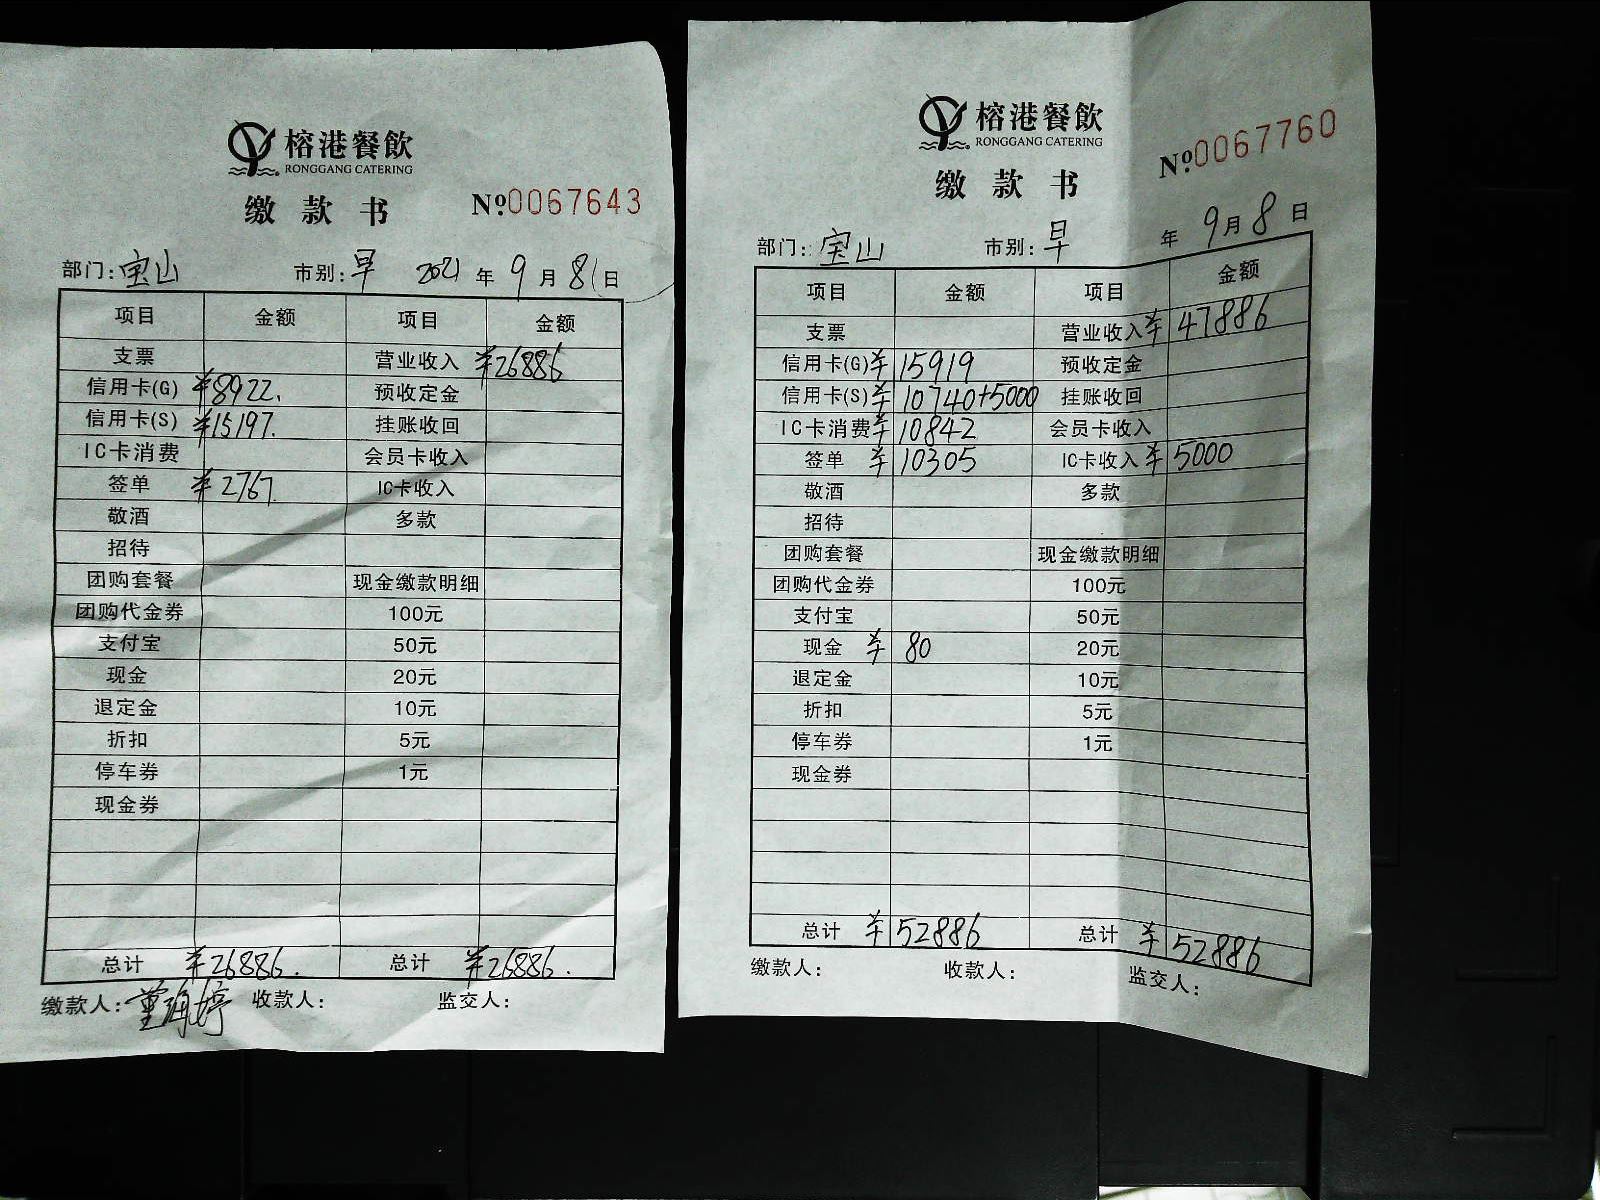 榕港餐飲
RONGGANG CATERING
缴款书 №0067643
部门:宝山 市别:早 2021年9月8日
项目 金额 项目 金额
支票 营业收入 ¥26886
信用卡(G) ¥8922. 预收定金
信用卡(S) ¥15197. 挂账收回
IC卡消费 会员卡收入
签单 ¥2767. IC卡收入
敬酒 多款
招待
团购套餐 现金缴款明细
团购代金券 100元
支付宝 50元
现金 20元
退定金 10元
折扣 5元
停车券 1元
现金券
总计 ¥26886. 总计 ¥26886.
缴款人: 收款人: 监交人:
榕港餐飲
RONGGANG CATERING
缴款书 №0067760
部门:宝山 市别:早 年9月8日
项目 金额 项目 金额
支票 营业收入 ¥47886
信用卡(G) ¥15919 预收定金
信用卡(S) ¥10740+5000 挂账收回
IC卡消费 ¥10842 会员卡收入
签单 ¥10305 IC卡收入 ¥5000
敬酒 多款
招待
团购套餐 现金缴款明细
团购代金券 100元
支付宝 50元
现金 ¥80 20元
退定金 10元
折扣 5元
停车券 1元
现金券
总计 ¥52886 总计 ¥52886
缴款人: 收款人: 监交人: